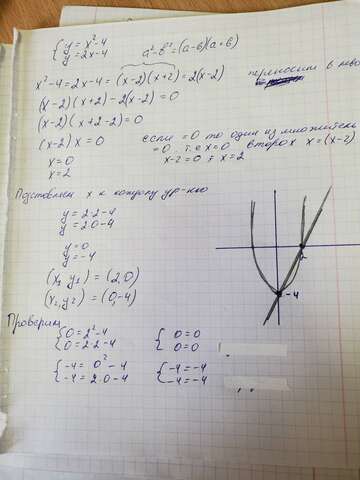 {y = x²-4
{y = 2x-4
a²-b²=(a-b)(a+b)
x²-4=2x-4= (x-2)(x+2)=2(x-2) переносим в лево
(x-2)(x+2)-2(x-2)=0
(x-2)(x+2-2)=0
(x-2)x=0 если =0 то один из множител
x=0 =0. т.е x=0 второй x x=(x-2)
x=2 x-2=0 = x=2
Подставляем x к каждому ур-нию
y=2·2-4
y=2·0-4
y=0
y=-4
(x₁,y₁)=(2,0)
(x₂,y₂)=(0,-4)
2
-4
Проверим
{0=2²-4 {0=0
{0=2·2-4 {0=0
{-4=0²-4 {-4=-4
{-4=2·0-4 {-4=-4